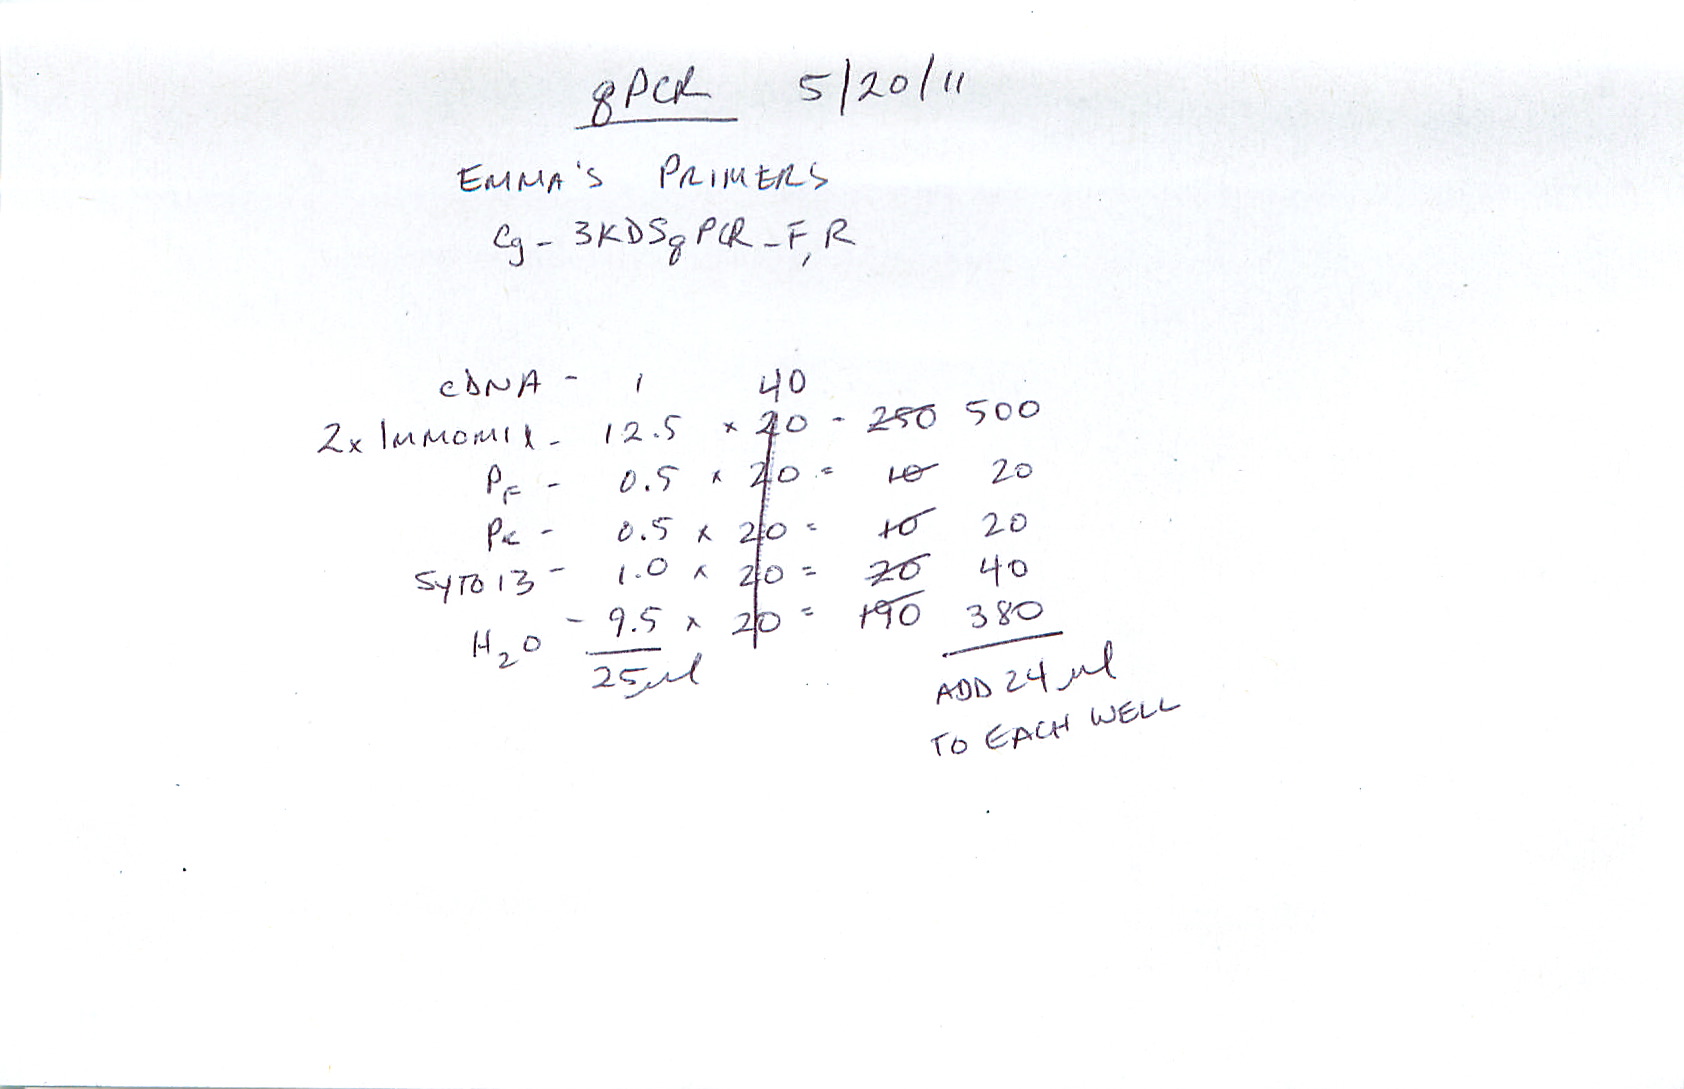 qPCR 5/20/11
EMMA'S PRIMERS
Cg - 3KDSqPCR - F, R
cDNA - 1 40
2x IMMOMIX - 12.5 x 20 - 250 500
PF - 0.5 x 20 = 10 20
PR - 0.5 x 20 = 10 20
SYTO 13 - 1.0 x 20 = 20 40
H2O - 9.5 x 20 = 190 380
25 µl
ADD 24 µl
TO EACH WELL